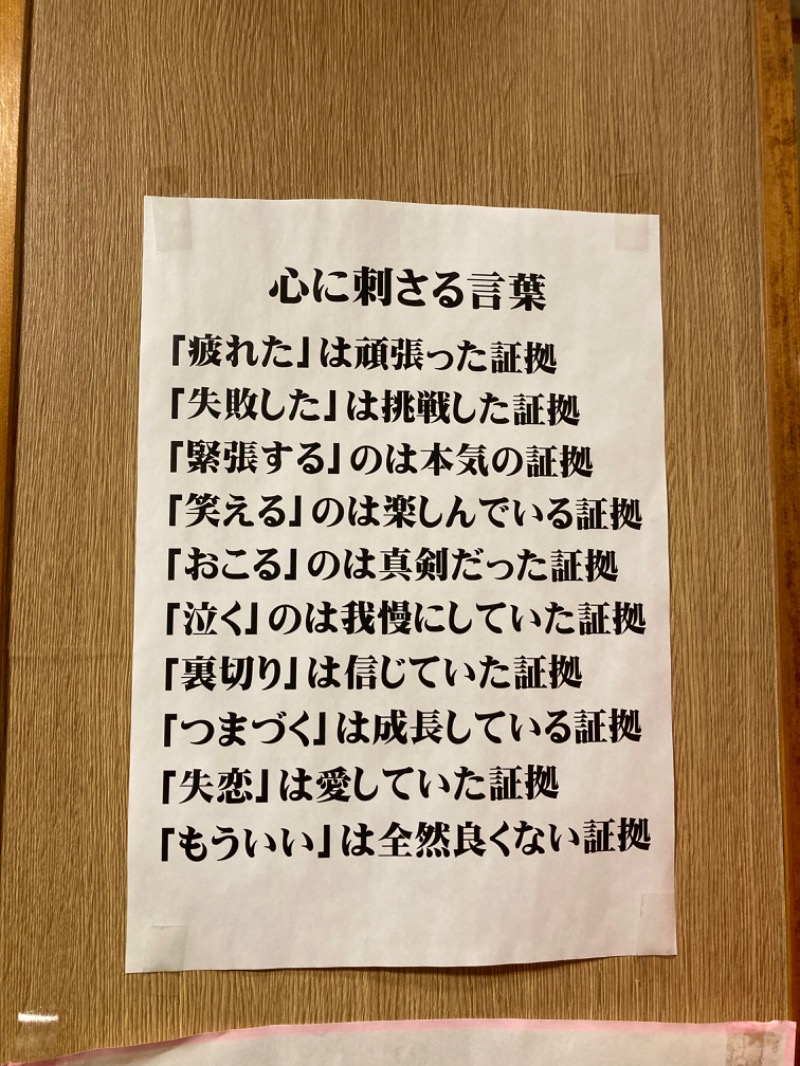 心に刺さる言葉
「疲れた」は頑張った証拠
「失敗した」は挑戦した証拠
「緊張する」のは本気の証拠
「笑える」のは楽しんでいる証拠
「おこる」のは真剣だった証拠
「泣く」のは我慢にしていた証拠
「裏切り」は信じていた証拠
「つまづく」は成長している証拠
「失恋」は愛していた証拠
「もういい」は全然良くない証拠